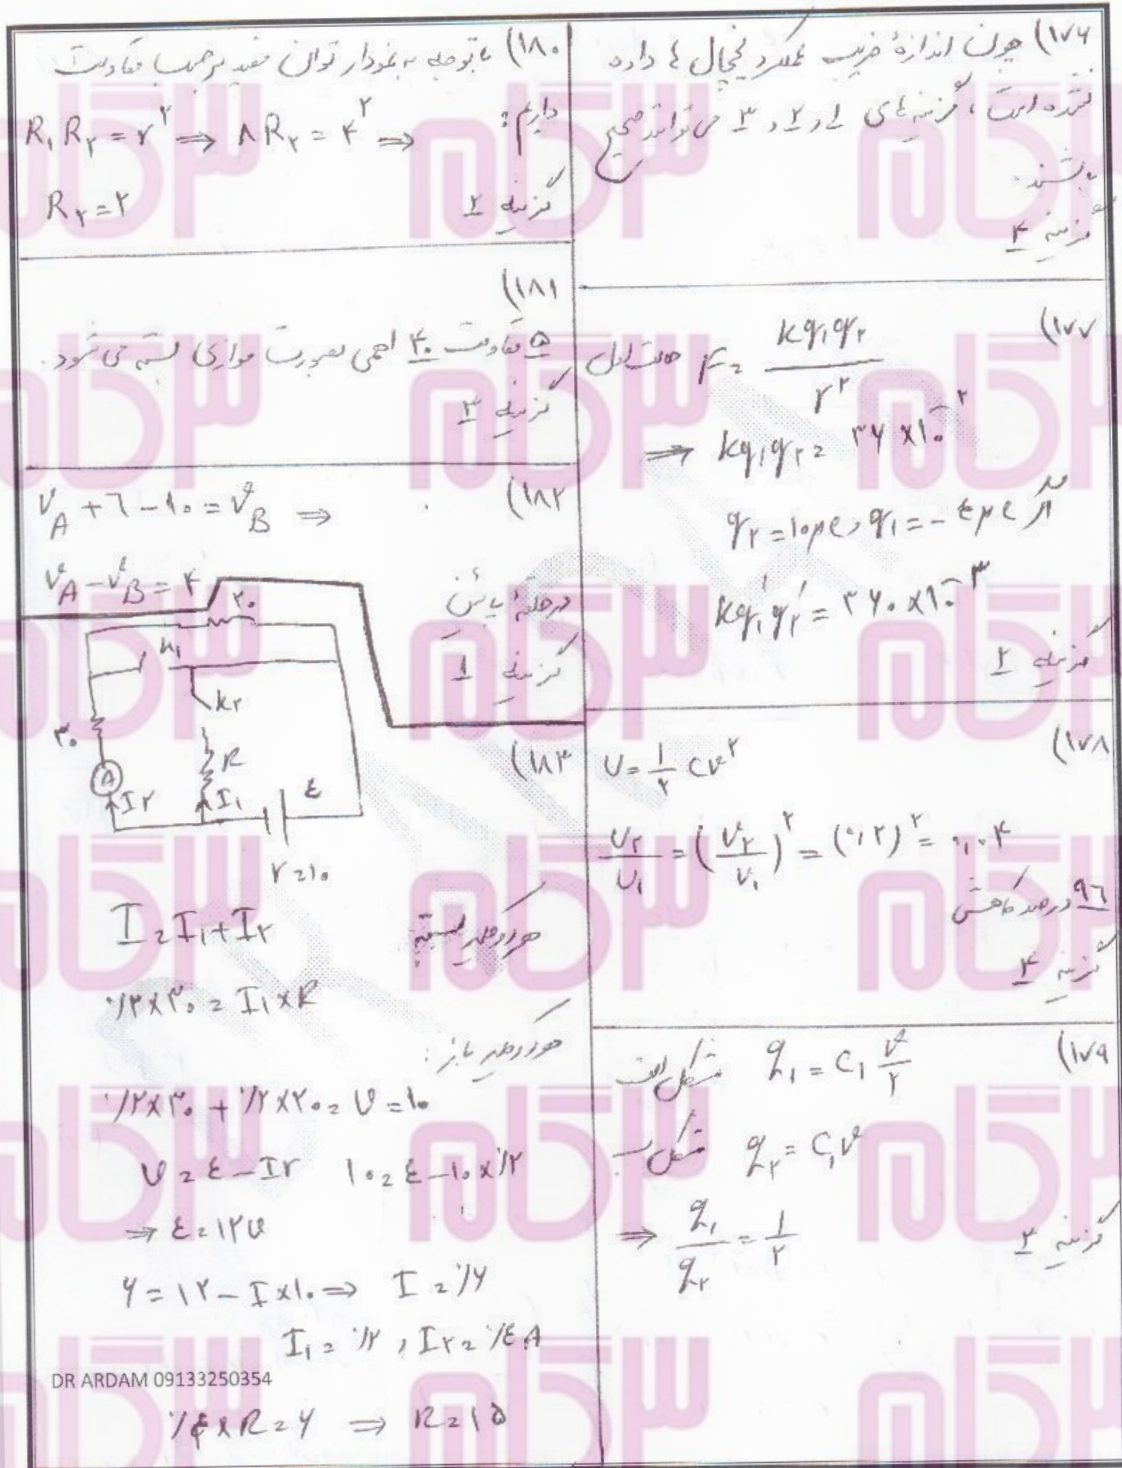 ۱۷۶) چون اندازهٔ ضریب عملکرد یخچال ها داده
نشده است، گزینه های ۱ و ۲ و ۳ می تواند صحیح
باشند.
گزینه ۴
۱۷۷)
حالت اول F = kq₁q₂ / r²
⇒ kq₁q₂ = ۳۶ × ۱۰⁻²
اگر q₁ = -۴μc و q₂ = ۱۰μc
kq₁′q₂′ = ۳۶۰ × ۱۰⁻³
گزینه ۲
۱۷۸)
U = ۱/۲ CV²
U₂/U₁ = (V₂/V₁)² = (۰/۲)² = ۰/۰۴
۹۶ درصد کاهش
گزینه ۴
۱۷۹)
شکل الف q₁ = C₁ V/۲
شکل ب q₂ = C₁V
⇒ q₁/q₂ = ۱/۲
گزینه ۳
۱۸۰) با توجه به نمودار توان مفید برحسب مقاومت
داریم:
R₁R₂ = r² ⇒ ۸R₂ = ۴² ⇒
R₂ = ۲
گزینه ۲
۱۸۱)
۵ مقاومت ۴۰ اهمی بصورت موازی بسته می شود.
گزینه ۳
۱۸۲)
V_A + ۶ - ۱۰ = V_B ⇒
V_A - V_B = ۴
در حلقهٔ پائین
گزینه ۱
۱۸۳)
۲۰
k₁
k₂
۳۰
R
A
I₂
I₁
ε
r = ۱۰
هر دو کلید بسته
I = I₁ + I₂
۰/۲ × ۳۰ = I₁ × R
هر دو کلید باز:
۰/۲ × ۳۰ + ۰/۲ × ۲۰ = V = ۱۰
V = ε - Ir ۱۰ = ε - ۱۰ × ۰/۲
⇒ ε = ۱۲v
۶ = ۱۲ - I × ۱۰ ⇒ I = ۰/۶
I₁ = ۰/۲ , I₂ = ۰/۴ A
DR ARDAM 09133250354
۰/۴ × R = ۶ ⇒ R = ۱۵